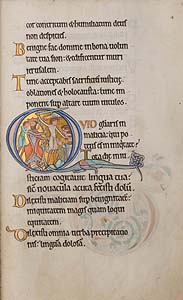 cor contritum & humiliatum deus
non despicies.
Benigne fac domine in bona volun
tate tua sion: ut edificentur muri
ierusalem.
Tunc acceptabis sacrificium iusticie
oblationes & holocausta: tunc im
ponent super altare tuum vitulos.
QVID gloriaris in
malicia: qui po
tens es in iniquitate?
Tota die iniu
sticiam cogitavit lingua tua:
sicut novacula acuta fecisti dolum.
Dilexisti maliciam super benignitatem:
iniquitatem magis quam loqui
equitatem.
Dilexisti omnia verba precipitatio
nis: lingua dolosa.